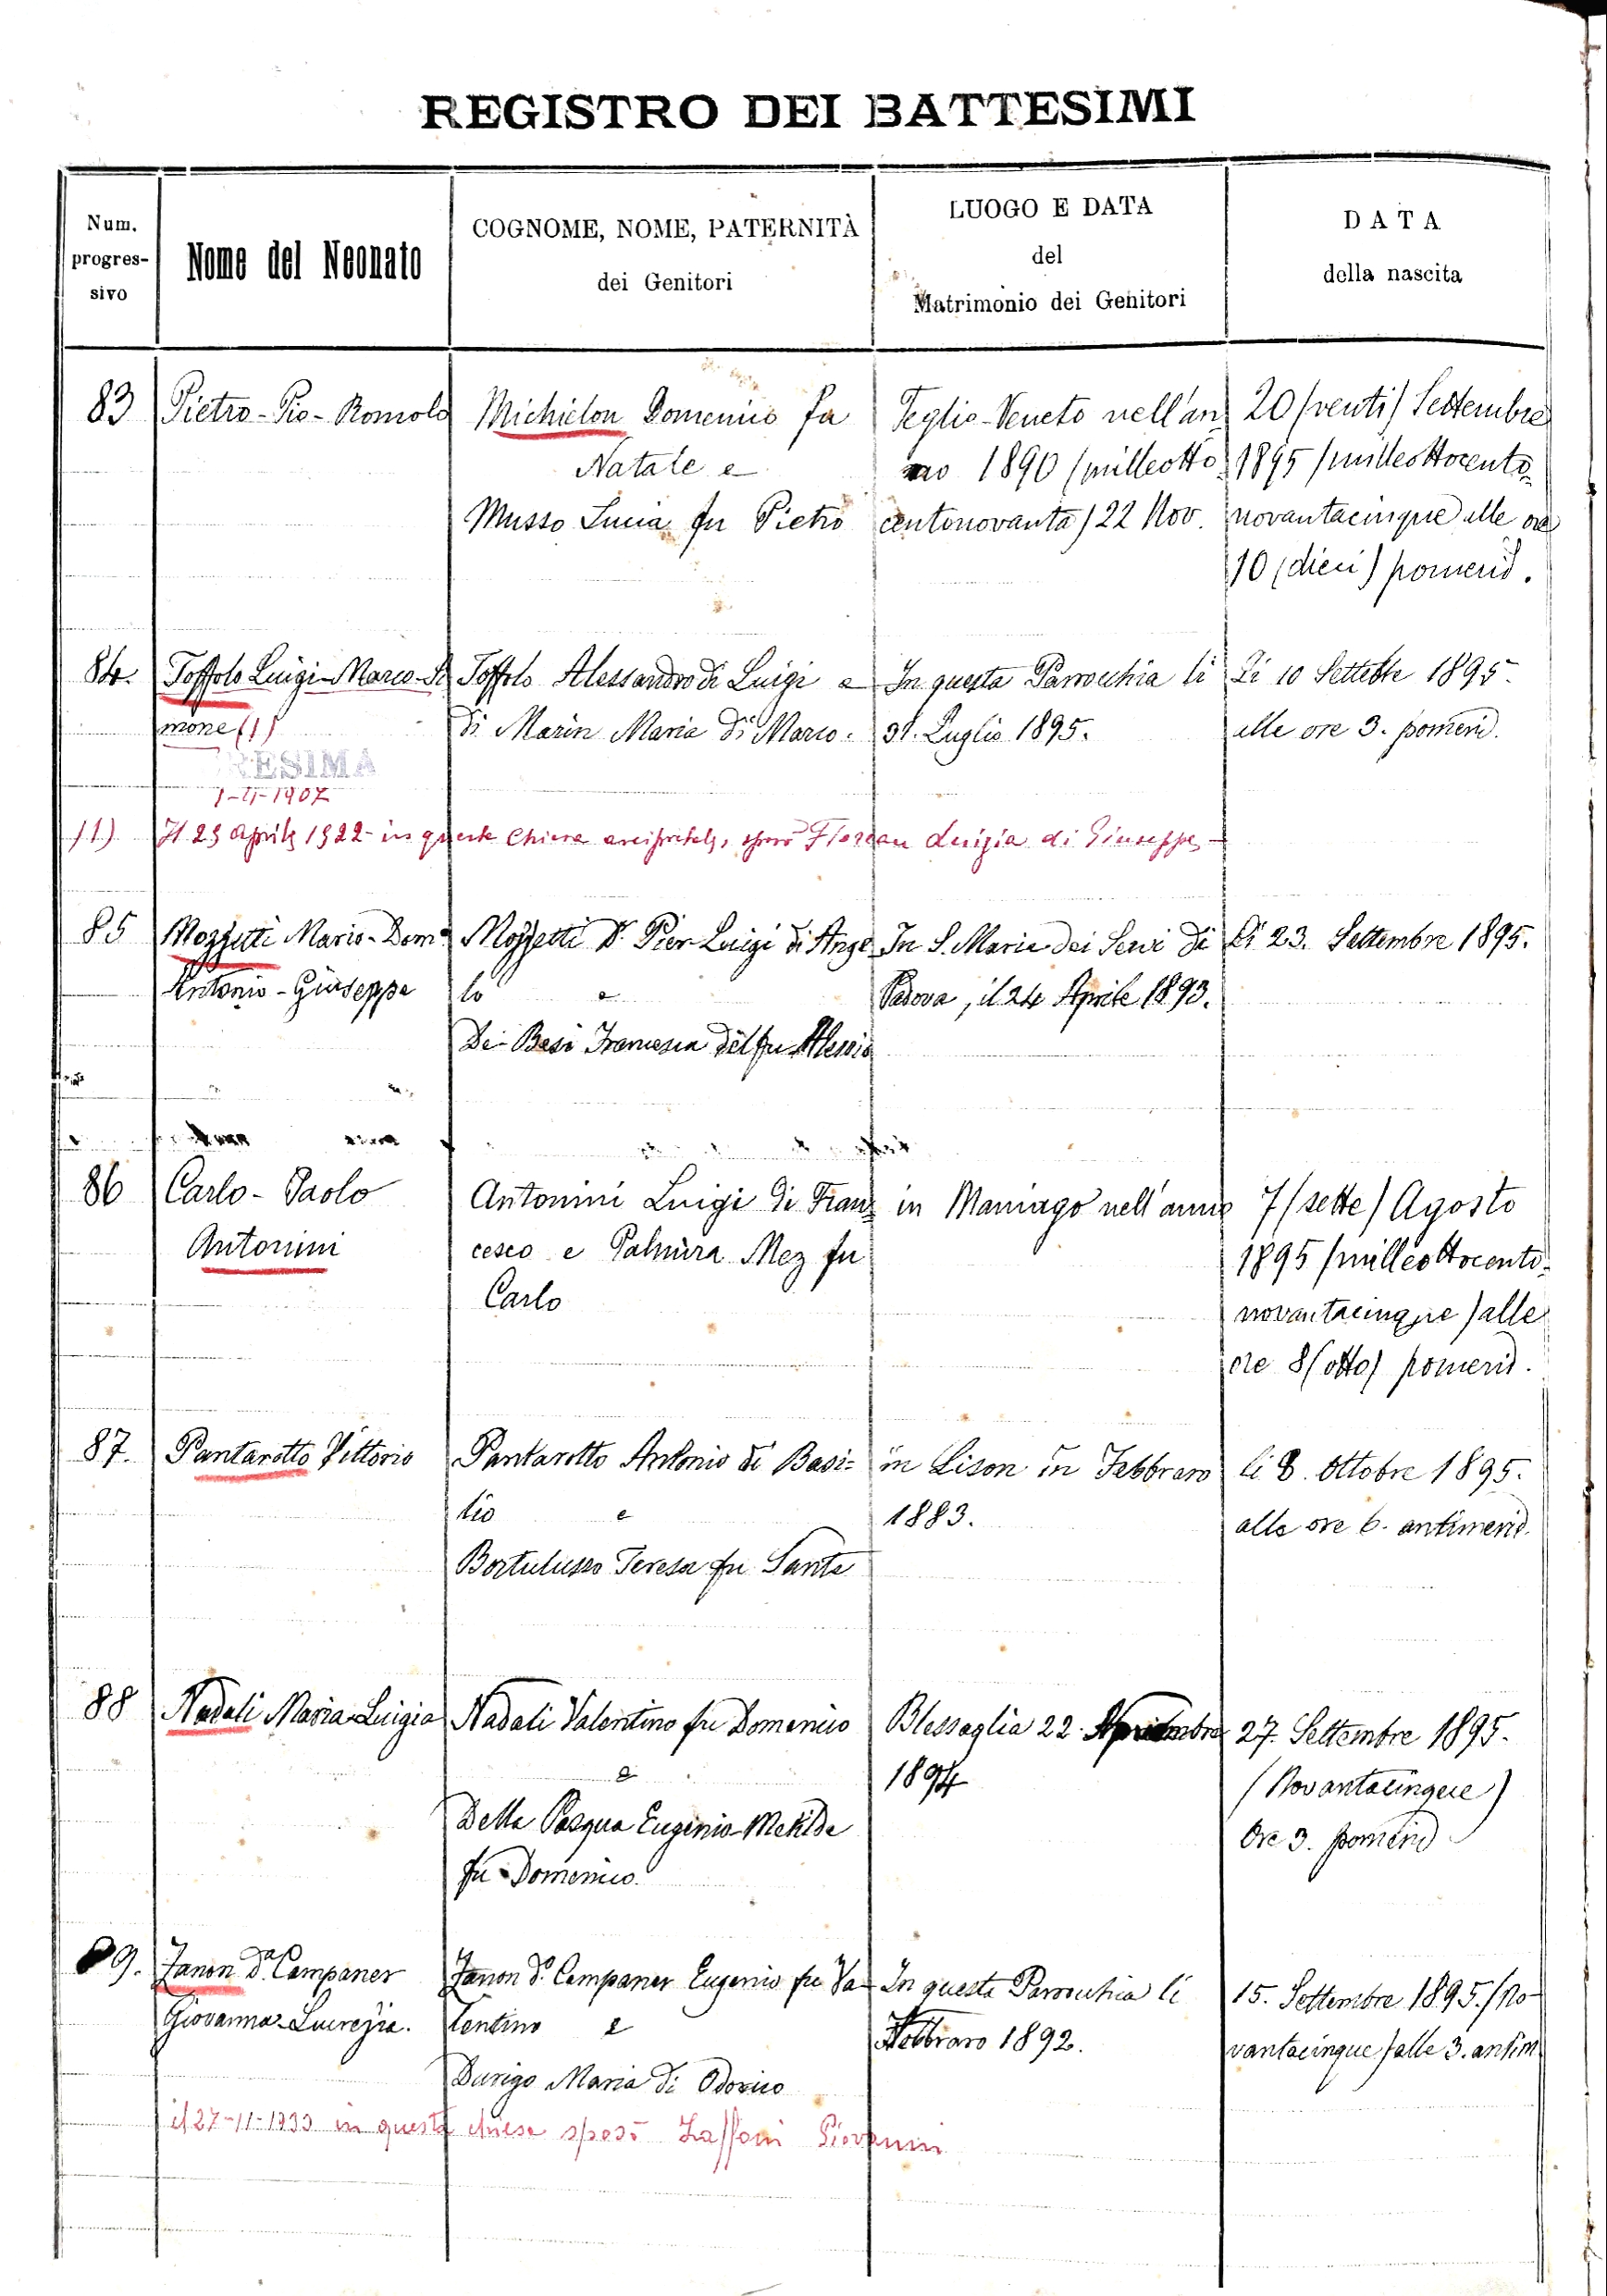 REGISTRO DEI BATTESIMI
Num.
progres-
sivo
Nome del Neonato
COGNOME, NOME, PATERNITÀ
dei Genitori
LUOGO E DATA
del
Matrimonio dei Genitori
DATA
della nascita
83
Pietro-Pio-Romolo
Michielon Domenico fu
Natale e
Musso Lucia fu Pietro
Teglio-Veneto nell'an
no 1890 (milleotto
centonovanta) 22 Nov.
20 (venti) Settembre
1895 (milleottocento-
novantacinque alle ore
10 (dieci) pomerid.
84.
Toffolo Luigi-Marco-Si
mone (1)
RESIMA
Toffolo Alessandro di Luigi e
di Marin Maria di Marco.
In questa Parrocchia li
31. Luglio 1895.
Li 10 Settebre 1895
alle ore 3. pomerid.
(1) Il 29 Aprile 1922 in questa Chiesa arcipretale, sposò Florean Luigia di Giuseppe
85
Mozzetti Mario-Dom
Antonio-Giuseppe
Mozzetti Dr. Pier Luigi di Ange
lo e
De-Besi Francesca del fu Alessio
In S. Maria dei Servi di
Padova, il 24 Aprile 1893.
Li 23. Settembre 1895.
86
Carlo-Paolo
Antonini
Antonini Luigi di Fran
cesco e Palmira Mez fu
Carlo
in Maniago nell'anno
7 (sette) Agosto
1895 (milleottocento-
novantacinque) alle
ore 8 (otto) pomerid.
87.
Pantarotto Vittorio
Pantarotto Antonio di Basi-
lio e
Bortulusso Teresa fu Sante
in Lison in Febbraro
1883.
li 8. Ottobre 1895.
alle ore 6. antimerid.
88
Nadali Maria-Luigia
Nadali Valentino fu Domenico
e
Della Pasqua Eugenia-Metilde
fu Domenico.
Blessaglia 22.
1894
27. Settembre 1895.
(Novantacinque)
Ore 3. pomerid
89.
Zanon Dº Campaner
Giovanna-Lucrezia.
Zanon Dº Campaner Eugenio fu Va-
lentino e
Durigo Maria di Odorico
In questa Parrocchia li
Febbraro 1892.
15. Settembre 1895. (No-
vantacinque) alle 3. antim
il 27-11-1933 in questa chiesa sposò Giovanni